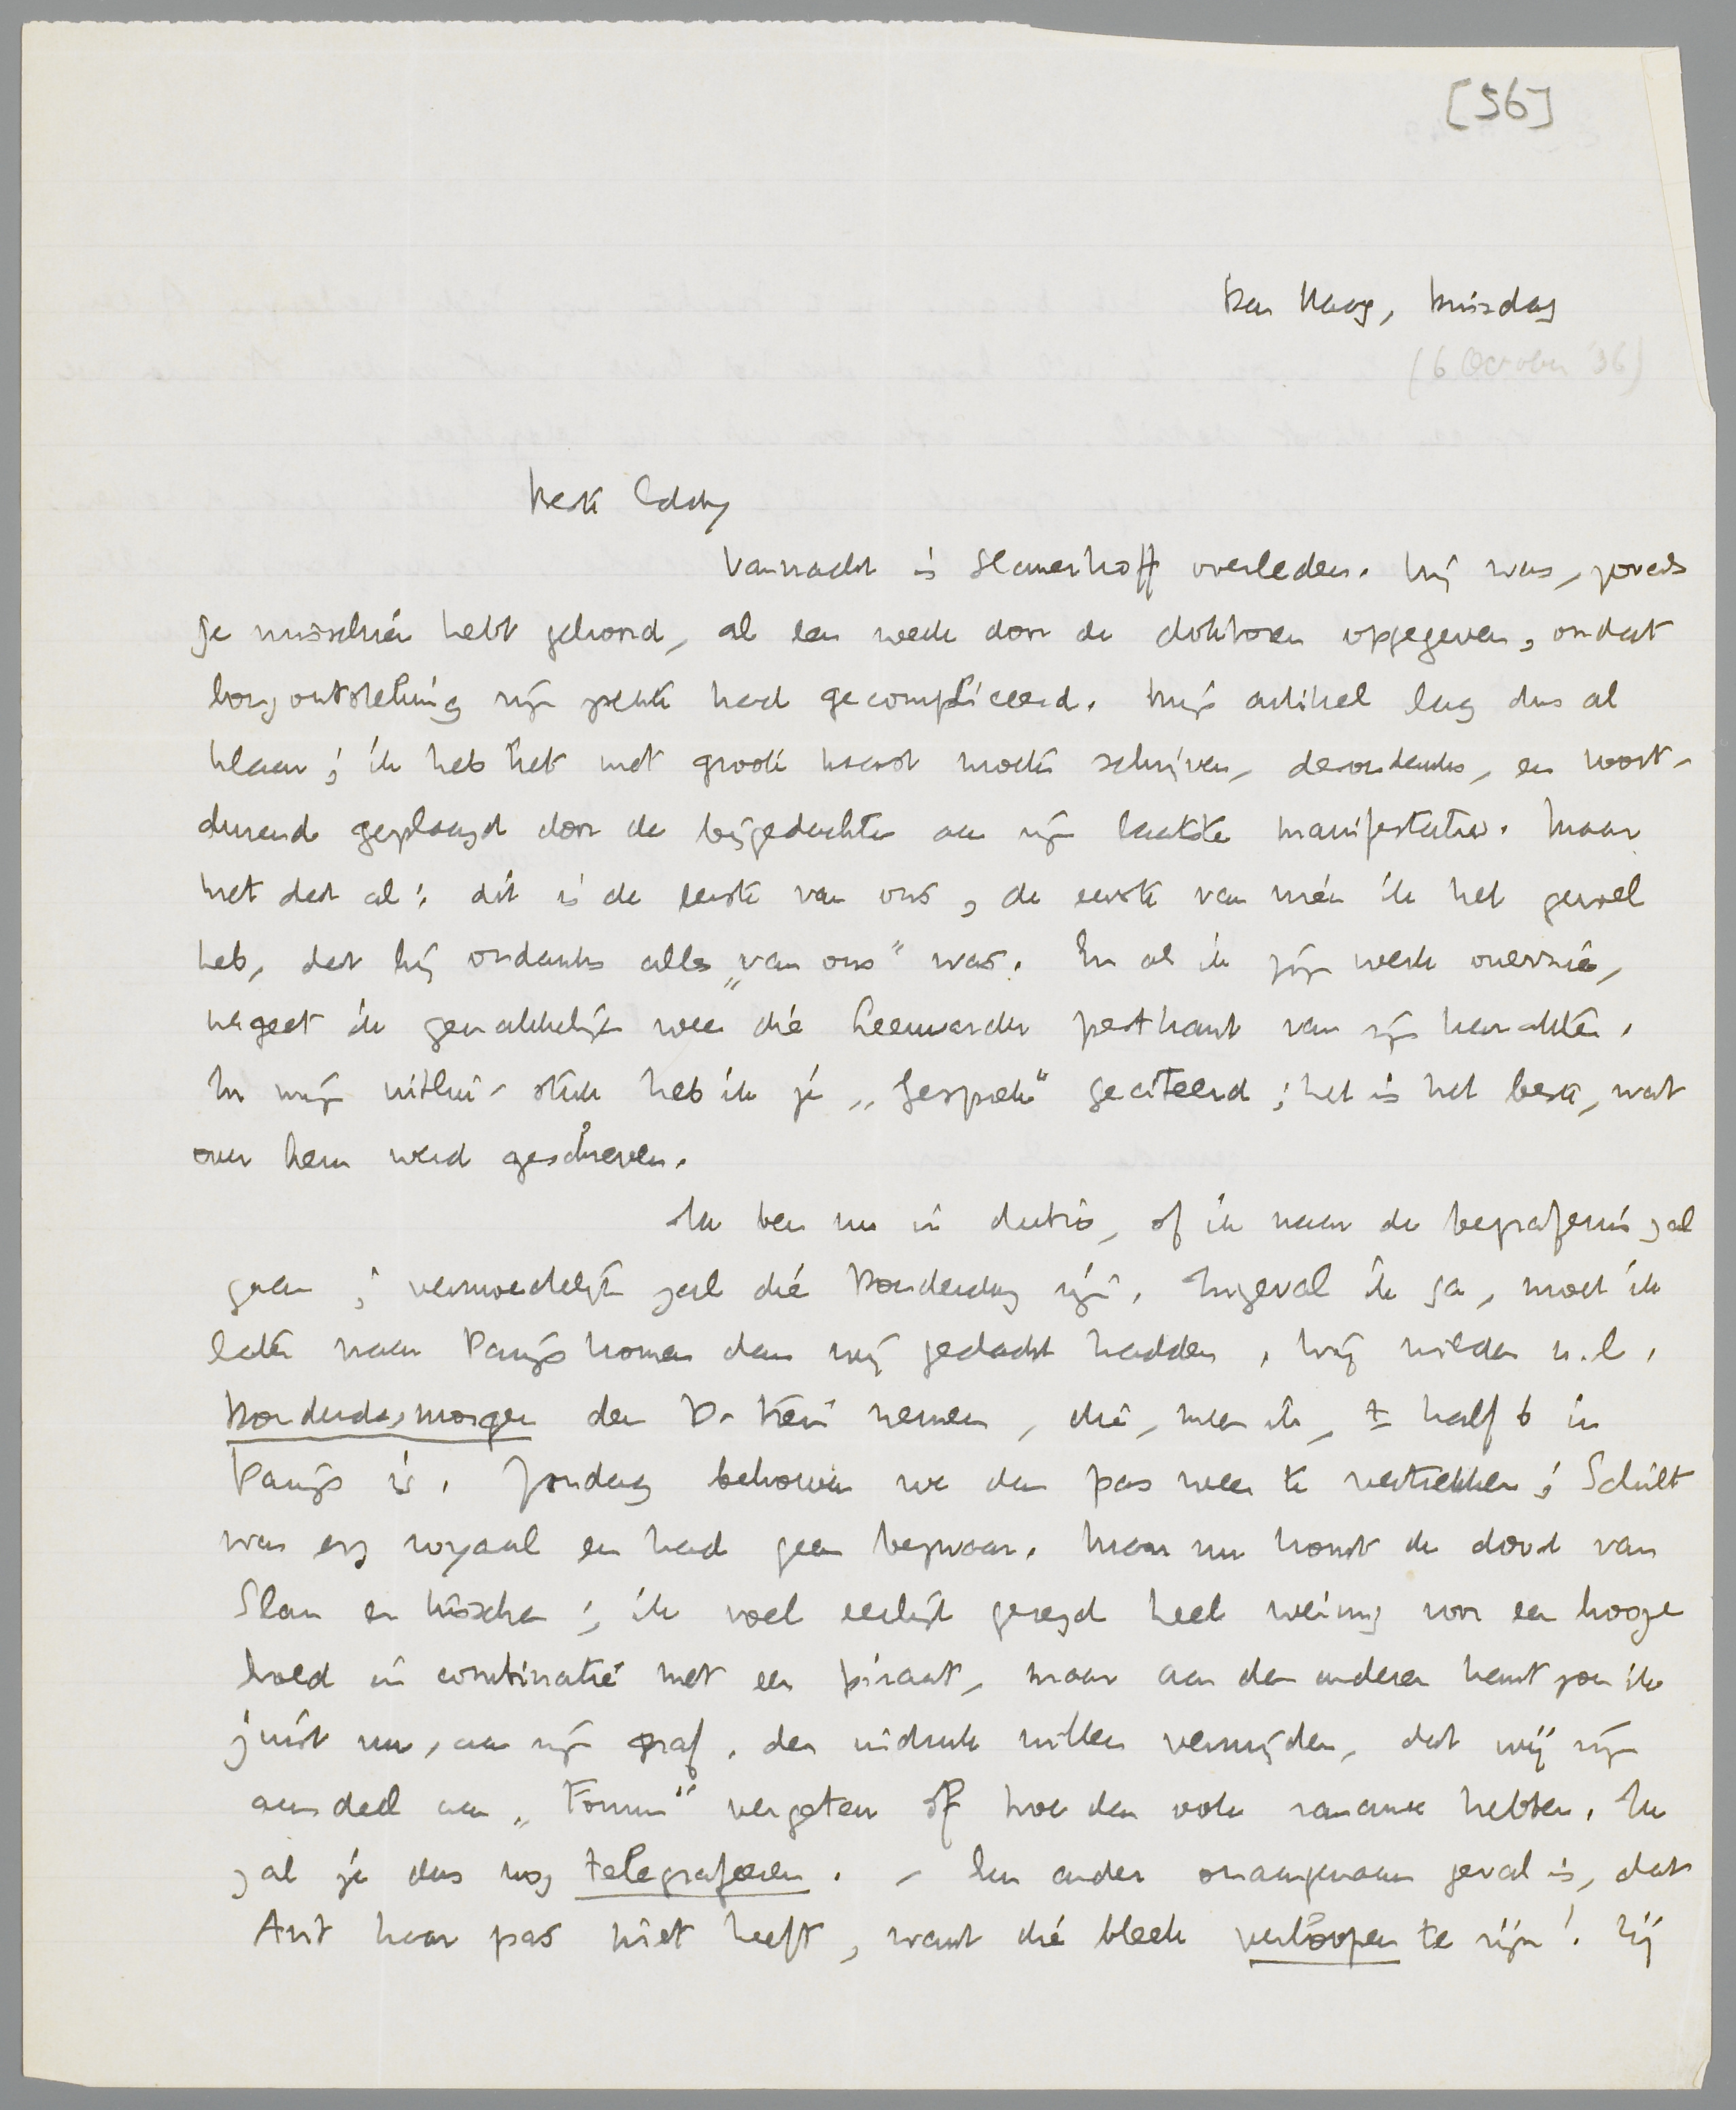 [56]
Den Haag, Dinsdag
(6 October '36)
Beste Eddy
Vannacht is Slauerhoff overleden. Hij was, zooals
je misschien hebt gehoord, al een week door de doktoren opgegeven, omdat
longontsteking zijn ziekte had gecompliceerd. Mijn artikel lag dus al
klaar; ik heb het met groote haast moeten schrijven, desondanks, en voort-
durend geplaagd door de bijgedachte aan zijn laatste manifestaties. Maar
met dat al: dit is de eerste van ons, de eerste van wien ik het gevoel
heb, dat hij ondanks alles „van ons" was. En als ik zijn werk overzie,
vergeet ik gemakkelijk weer die Leeuwarder pestkant van zijn karakter.
In mijn artikel-stuk heb ik je „Gesprek" geciteerd; het is het beste, wat
over hem werd geschreven.
Ik ben nu in dubio, of ik naar de begrafenis zal
gaan; vermoedelijk zal die Donderdag zijn. Ingeval ik ga, moet ik
later naar Parijs komen dan wij gedacht hadden. Wij wilden n.l.
Donderdagmorgen den D-trein nemen, die, meen ik, ± half 6 in
Parijs is. Zondag behoeven we dan pas weer te vertrekken; Schilt
was erg royaal en had geen bezwaar. Maar nu komt de dood van
Slau er tusschen; ik voel eerlijk gezegd heel weinig voor een hooge
hoed in combinatie met een piraat, maar aan den anderen kant zou ik
juist nu, aan zijn graf, den indruk willen vermijden, dat wij zijn
aandeel aan „Forum" vergeten of hoe dan ook rancune hebben. Ik
zal je dus nog telegrafeeren. – Een ander onaangenaam geval is, dat
Ant haar pas niet heeft, want die bleek verloopen te zijn! Zij